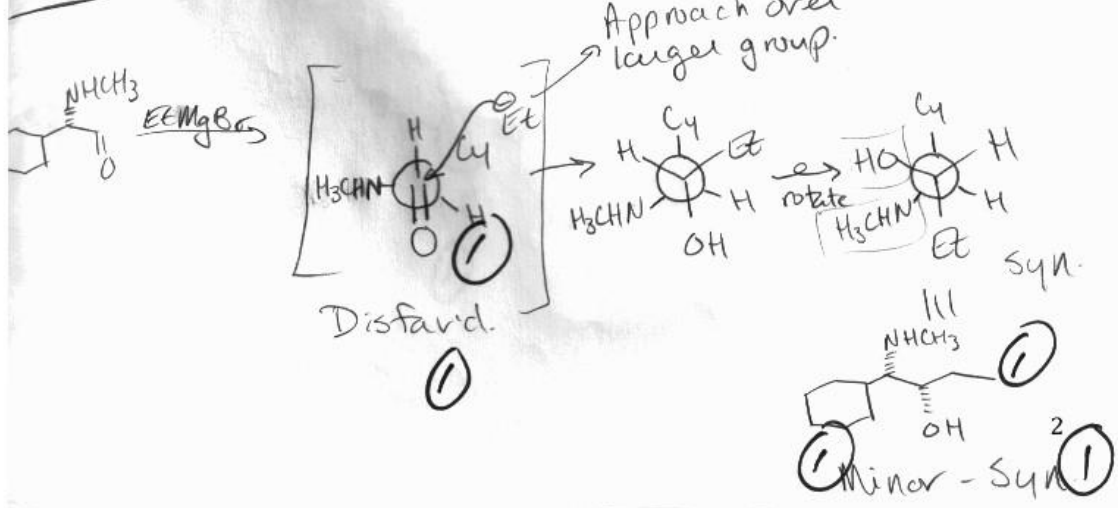 Approach over
larger group.
NHCH3
EtMgBr
O
H
Cy
Et
H3CHN
H
O
1
Disfav'd.
1
Cy
H
Et
H3CHN
H
OH
rotate
Cy
HO
H
H3CHN
H
Et
Syn.
NHCH3
OH
1
1
Minor - Syn
2
1